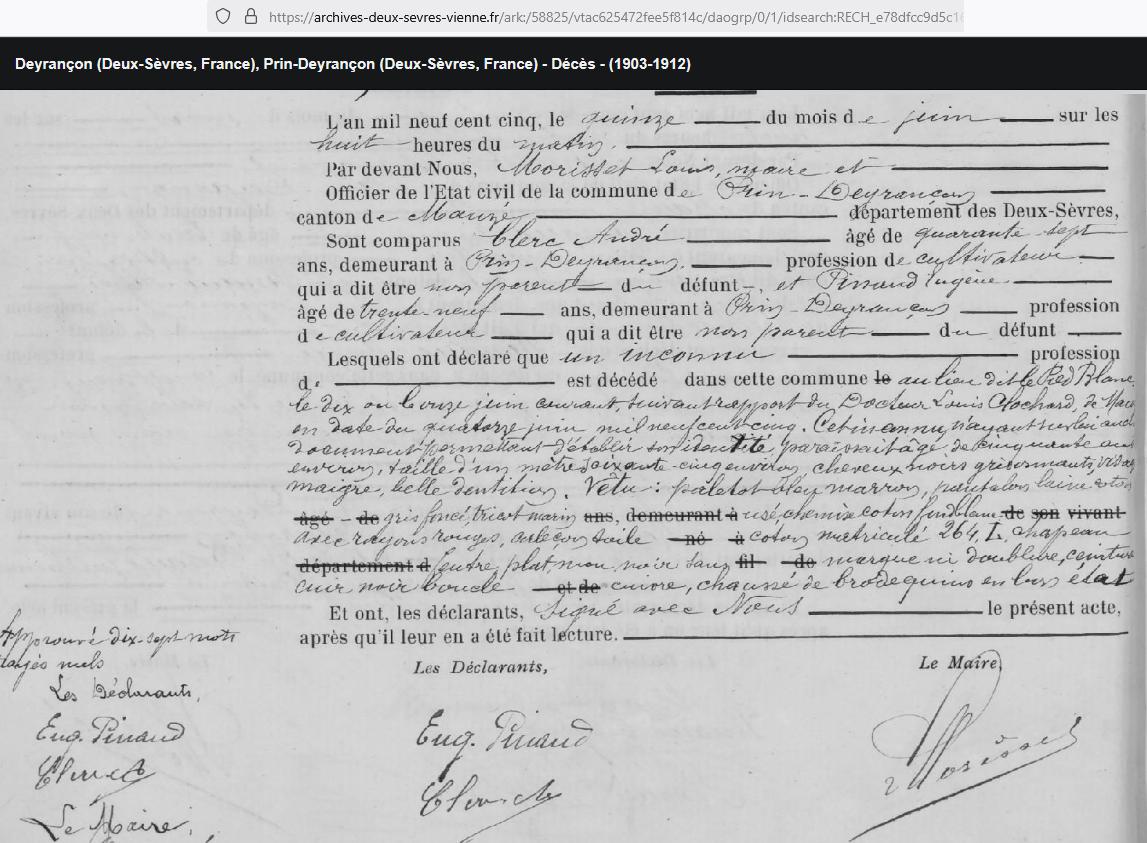 https://archives-deux-sevres-vienne.fr/ark:/58825/vtac625472fee5f814c/daogrp/0/1/idsearch:RECH_e78dfcc9d5c1
Deyrançon (Deux-Sèvres, France), Prin-Deyrançon (Deux-Sèvres, France) - Décès - (1903-1912)
L'an mil neuf cent cinq, le quinze du mois de juin sur les
huit heures du matin.
Par devant Nous, Morisset Louis, maire et
Officier de l'Etat civil de la commune de Prin-Deyrançon
canton de Mauzé, département des Deux-Sèvres,
Sont comparus Clerc André âgé de quarante-sept
ans, demeurant à Prin-Deyrançon, profession de cultivateur
qui a dit être non parent du défunt et Pinaud Eugène
âgé de trente neuf ans, demeurant à Prin-Deyrançon profession
de cultivateur qui a dit être non parent du défunt
Lesquels on déclaré que un inconnu profession
d est décédé dans cette commune le au lieu dit le Pied Blanc
le dix ou onze juin courant, suivant rapport du Docteur Louis Clochard, de Mauzé
en date du quatorze juin mil neuf cent cinq. Cet inconnu n'ayant sur lui aucun
document permettant d'établir son identité, paraissait âgé de cinquante ans
environ, taille d'un mètre soixante-cinq environ, cheveux noirs grisonnants, visage
maigre, belle dentition. Vêtu : paletot bleu marron, pantalon laine coton
âgé de gris foncé, tricot marin ans, demeurant à usé, chemise coton fond blanc de son vivant
avec rayons rouges, caleçon toile né à coton matricule 264, L, chapeau
département d feutre, plat mou, noir sans fil de marque ni doublure, ceinture
cuir noir boucle et de cuivre, chaussé de brodequins en bon état
Et ont, les déclarants, signé avec Nous le présent acte,
après qu'il leur en a été fait lecture.
Approuvé dix-sept mots
rayés nuls
Les Déclarants,
Le Maire,
Les Déclarants,
Eug. Pinaud
Eug. Pinaud
Morisset
Clerc A
Clerc A
Le Maire,